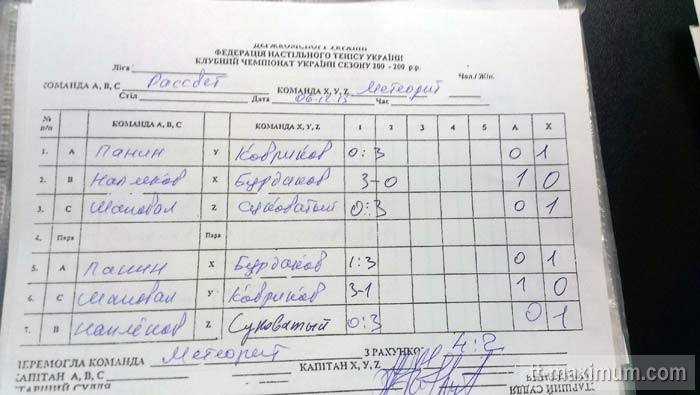 ДЕРЖКОМСПОРТ УКРАЇНИ
ФЕДЕРАЦІЯ НАСТІЛЬНОГО ТЕНІСУ УКРАЇНИ
КЛУБНИЙ ЧЕМПІОНАТ УКРАЇНИ СЕЗОНУ 200 - 200 р.р.
Ліга Чол./ Жін.
КОМАНДА А, В, С Рассвет КОМАНДА X, Y, Z Метеорит
Стіл Дата 06.12.15 Час
№ п/п КОМАНДА А, В, С КОМАНДА X, Y, Z 1 2 3 4 5 А X
1. А Панин Y Ковриков 0:3 0 1
2. В X Бурдаков 3-0 1 0
3. С Шаповал Z Суховатый 0:3 0 1
4. Пара Пара
5. А Панин X Бурдаков 1:3 0 1
6. С Шаповал Y Ковриков 3-1 1 0
7. В Z Суховатый 0:3 0 1
ПЕРЕМОГЛА КОМАНДА Метеорит З РАХУНКОМ 4:2
КАПІТАН А, В, С КАПІТАН X, Y, Z
СТАРШИЙ СУДДЯ СТАРШИЙ СУДДЯ
tt-maximum.com